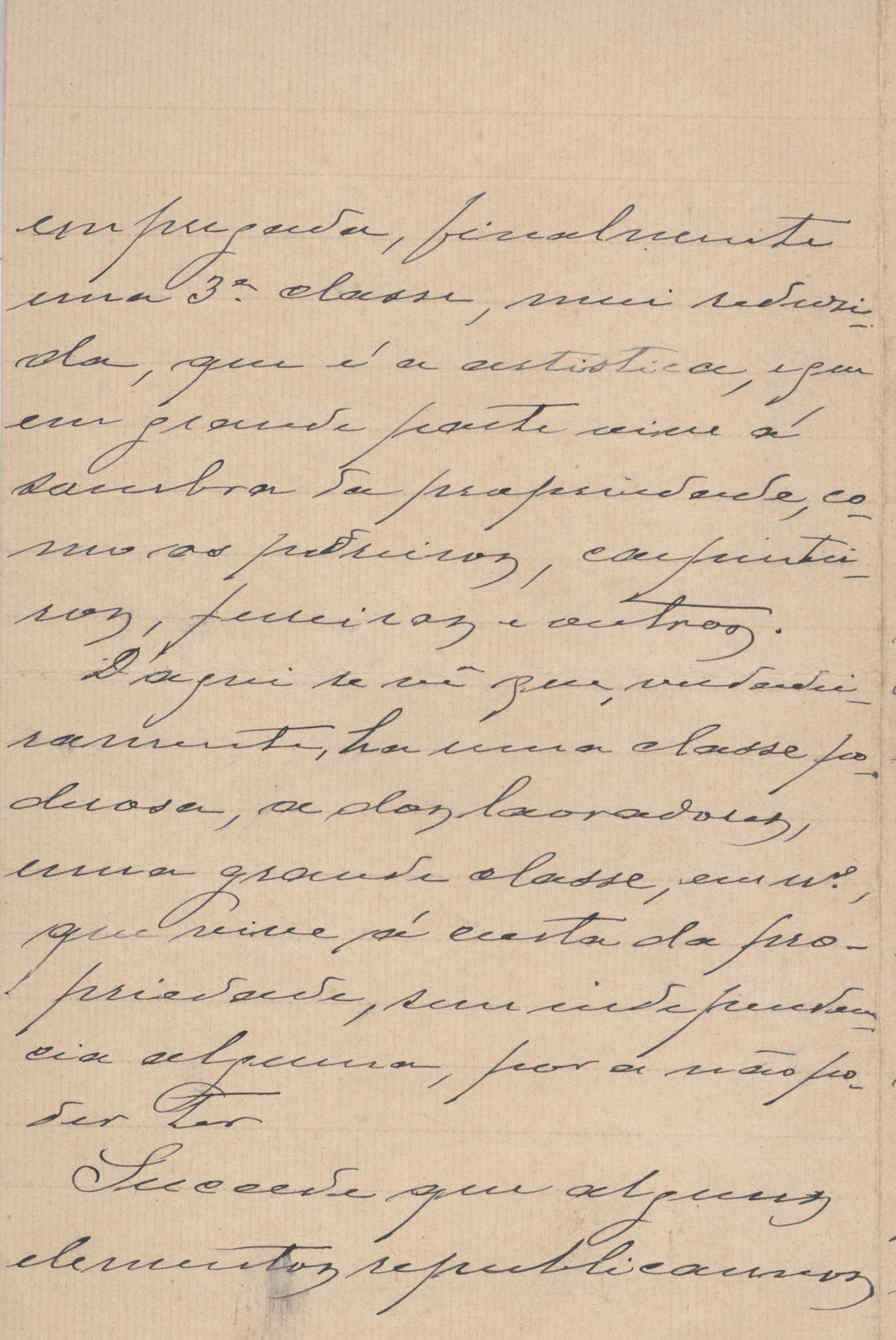 empregada, finalmente
uma 3ª classe, mui redusi-
da, que é a artistica, e que
em grande parte vive á
sombra da propriedade, co-
mo os pedreiros, carpintei-
ros, ferreiros e outros.
D'aqui se vê que, verdadei-
ramente, ha uma classe po-
derosa, a dos lavradores,
uma grande classe, em nº,
que vive á custa da pro-
priedade, sem independen-
cia alguma, por a não po-
der ter
Succede que alguns
elementos republicannos